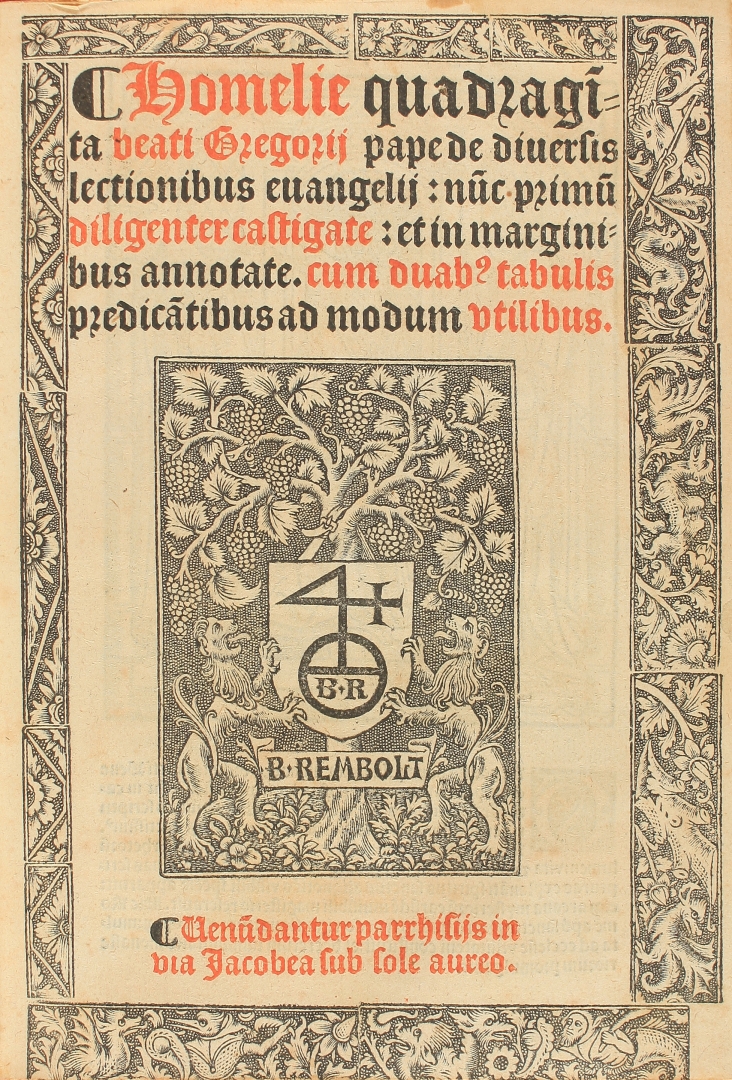 ¶Homelie quadragī⸗
ta beati Gregorij pape de diuersis
lectionibus euangelij : nūc primū
diligenter castigate : et in margini⸗
bus annotate. cum duabꝰ tabulis
predicātibus ad modum vtilibus.
B·R
B·REMBOLT
¶Uenūdantur parrhisijs in
via Jacobea sub sole aureo.